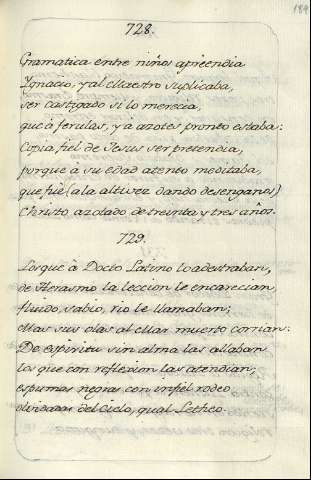 189
728.
Gramatica entre niños aprendia
Ygnacio, y al Maestro suplicaba,
ser castigado si lo merecia,
que à ferulas, y à azotes pronto estaba:
Copia fiel de Jesus ser pretendia,
porque à su edad atento meditaba,
que fuè (a la altivez dando desengaños)
Christo azotado de treinta y tres años.
729.
Los que à Docto Latino lo adestraban,
de Herasmo la leccion le encarecian
fluido, sabio, rio le llamaban;
Mas sus olas al Mar muerto corrian:
De espiritu sin alma las allaban
los que con reflexion las atendian,
espumas negras con infiel rodeo
del Cielo, qual Letheo.